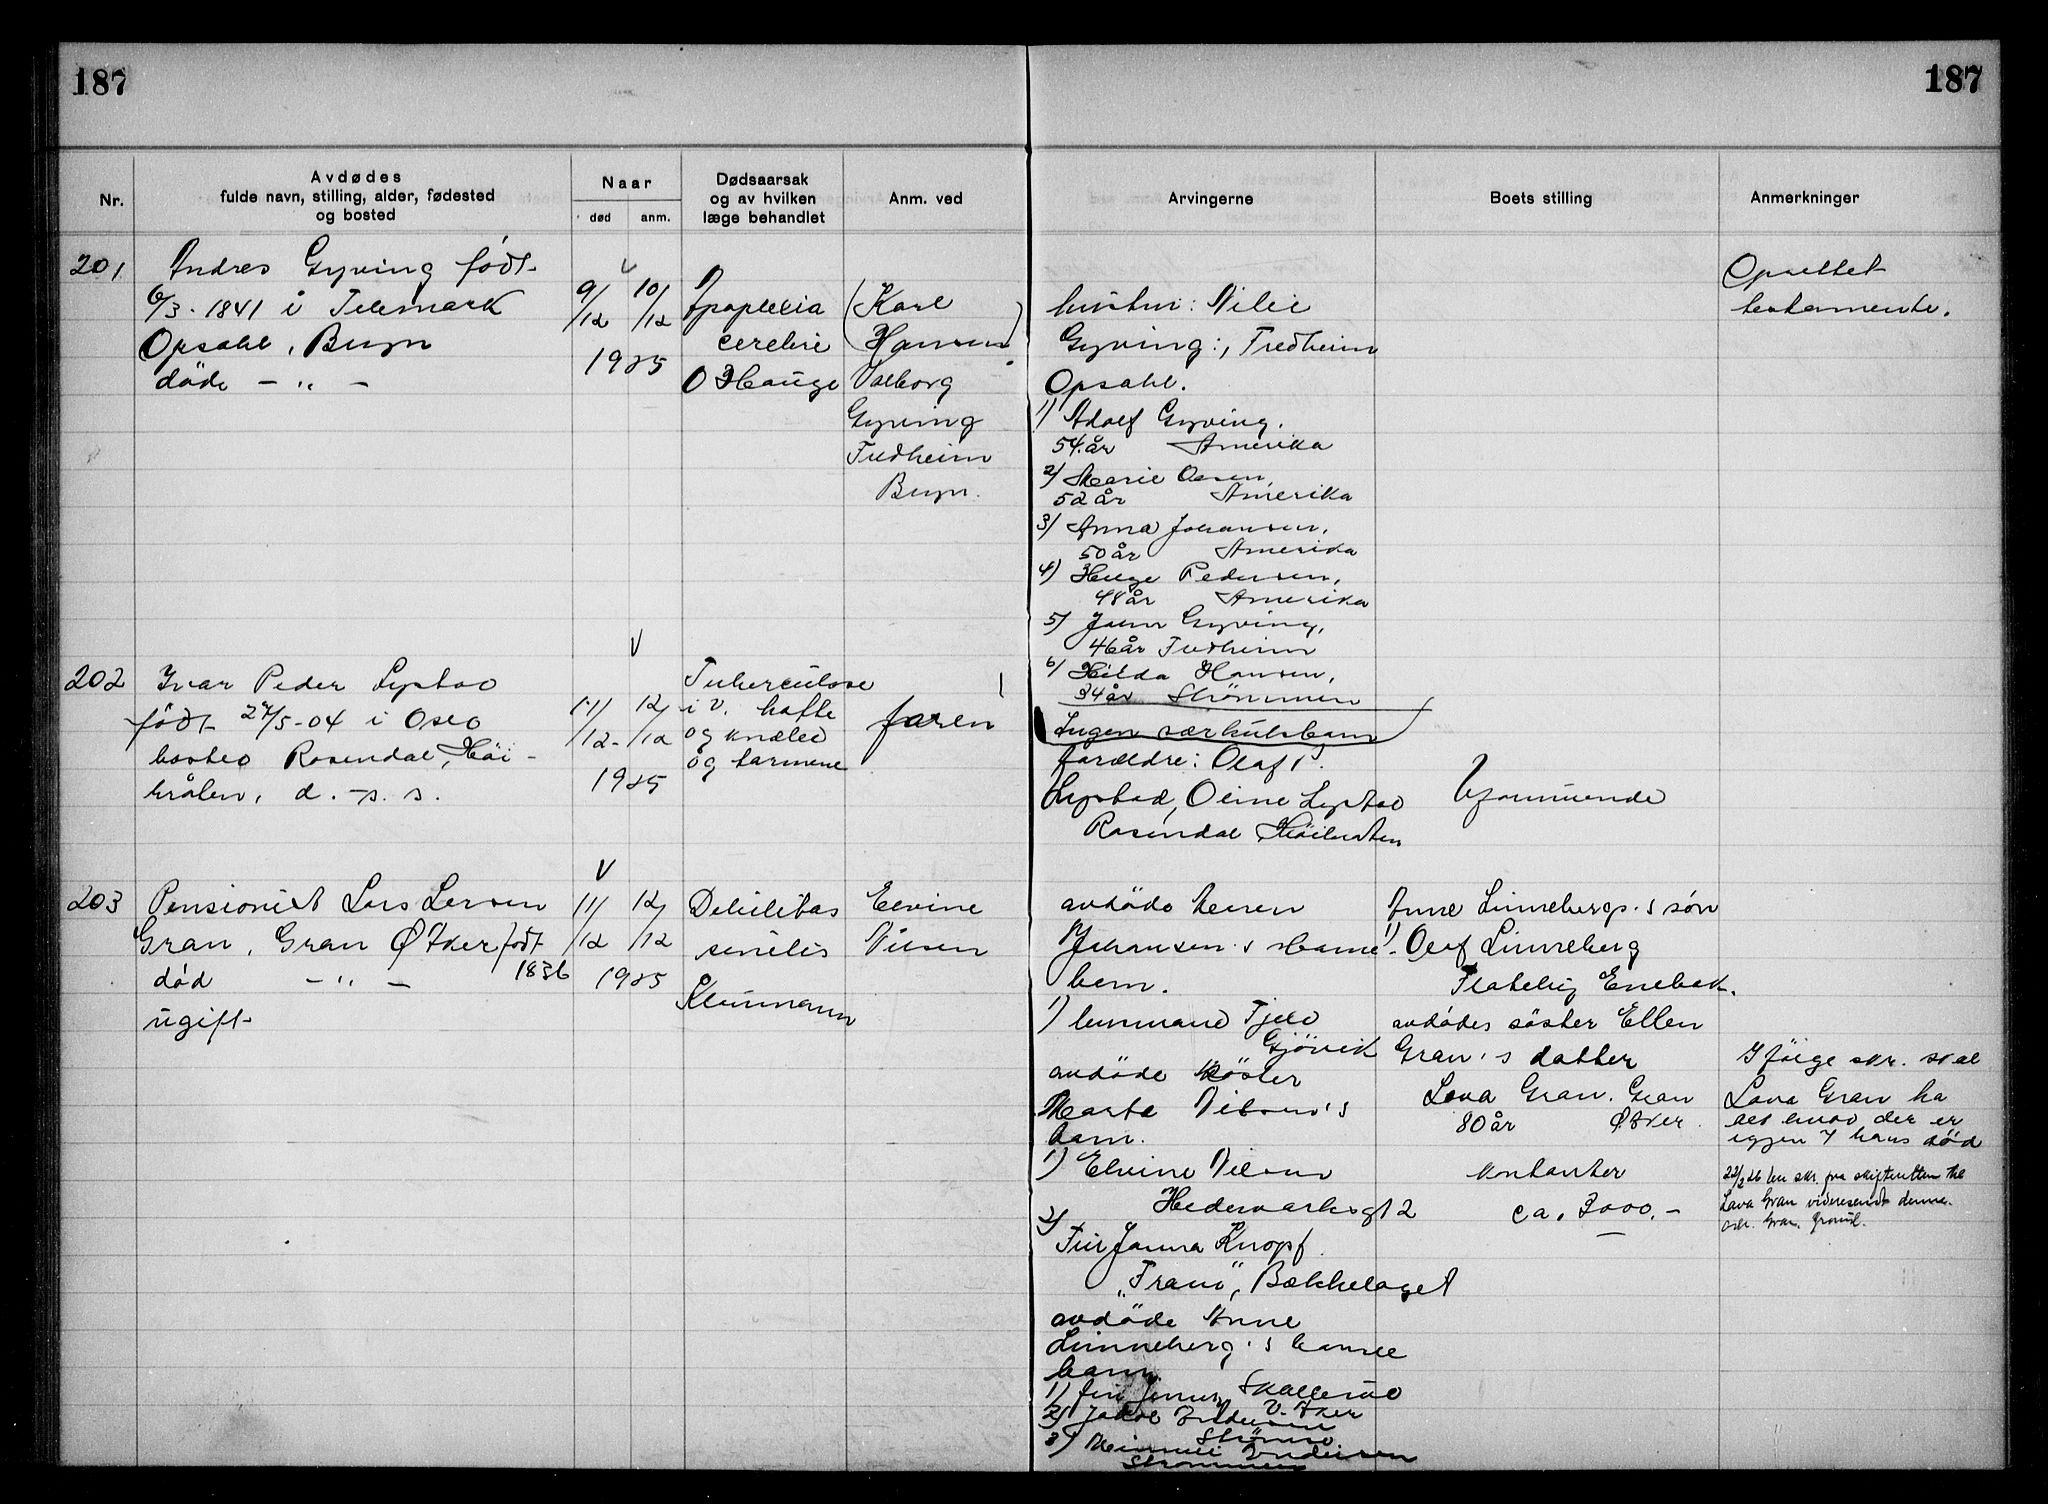 187
187
Nr.
Avdødes
fulde navn, stilling, alder, fødested
og bosted
Naar
død
anm.
Dødsaarsak
og av hvilken
læge behandlet
Anm. ved
Arvingerne
Boets stilling
Anmerkninger
201
Andres Gyving født
6/3 - 1841 i Telemark
Opsahl, Bryn
døde - " -
9/12
10/12
1925
Apoplexia
cerebri
O Hauge
(Karl
Hansen)
Valborg
Gyving
Fredheim
Bryn.
hustru:
Gyving:, Fredheim
Opsahl.
1) Adolf Gyving,
54 år Amerika
2) Marie Olsen,
52 år Amerika
3) Anna Johansen,
50 år Amerika
4) Helge Pedersen,
48 år Amerika
5) Gyving,
46 år Fredheim
6) Hilda Hansen,
34 år Strømmen
Ingen særkulsbarn
Oprettet
testamente.
202
Ivar Peder Lystad
født 27/5-04 i Oslo
bosted Rosendal, Høi-
bråten, d. s. s.
11/12
12/12
1925
Tuberculose
i v. hofte
og knæled
og tarmene
faren
forældre: Olaf P.
Lystad, Oline Lystad
Rosendal Høibråten
Uformuende
203
Pensionist Lars Larsen
Gran, Gran Ø Aker født
død - " - 1836
ugift
11/12
12/12
1925
Debilitas
senilis
Elvine
Nilsen
avdøde
Johansen's
barn.
1)
Gjøvik
avdøde søster
Marte Nilsen's
barn.
1) Elvine Nilsen
Hedemarksgt 2
2) Fru Janna Knopf.
"Fram", Bækkelaget
avdøde Anne
Linneberg's
barn
1) fru Skallerud
V. Aker
2) Jakob
3) Andersen
Strømmen
Anne Linneberg's søn
1. Olaf Linneberg
Flateby Enebak.
avdødes søster Ellen
Gran's datter
Lava Gran. Gran
80 år Ø. Aker.
kontanter
ca. 3000,-
Ifølge skr. skal
Lava Gran ha
alt hvad der er
igjen e/ hans død
22/2 26 skr. fra skifteretten til
Lava Gran videresendt denne.
adr. Gran,